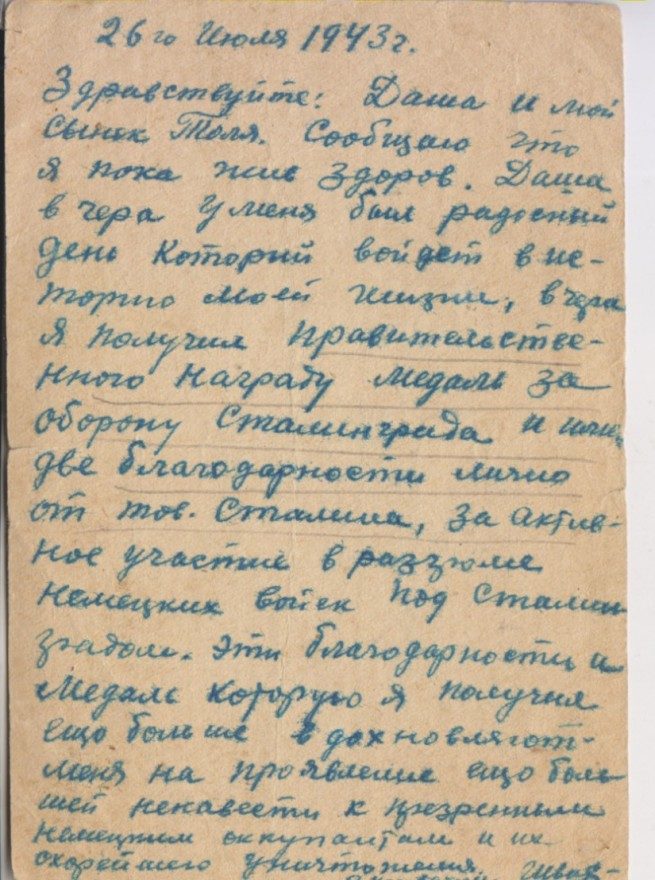 26 го Июля 1943 г.
Здравствуйте: Даша и мой
сынок Толя. Сообщаю что
я пока жив здоров. Даша
вчера у меня был радосный
день который войдет в ис-
торию моей жизни, вчера
я получил правительстве-
нного награду медаль за
оборону Сталинграда и
две благодарности лично
от тов. Сталина, за актив-
ное участие в раззроме
немецких войск под Сталин
градом. Эти благодарности и
медаль которую я получил
ещо больше вдохновляют-
меня на проявление ещо боль
шей ненависти к
немецким оккупантам и их
скорейшего уничтожения.